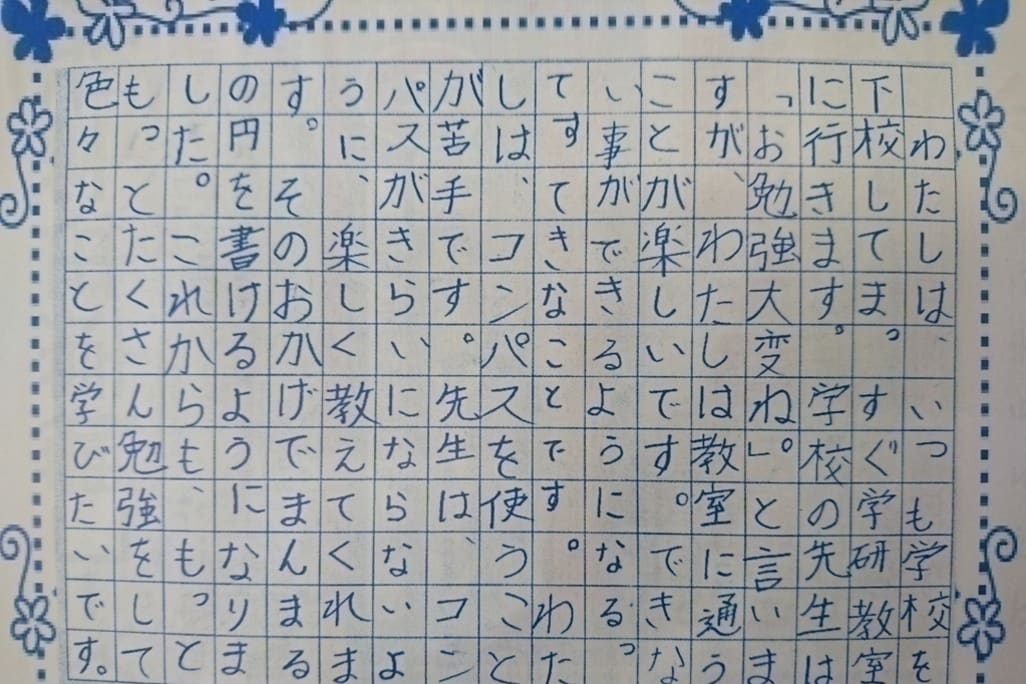 わたしは、いつも学校を
下校してまっすぐ学研教室
に行きます。学校の先生は
「お勉強大変ね」。と言いま
すが、わたしは教室に通う
ことが楽しいです。できな
い事ができるようになるっ
てすてきなことです。わた
しは、コンパスを使うこと
が苦手です。先生は、コン
パスがきらいにならないよ
うに、楽しく教えてくれま
す。そのおかげでまんまる
の円を書けるようになりま
した。これからも、もっと
もっとたくさん勉強をして
色々なことを学びたいです。